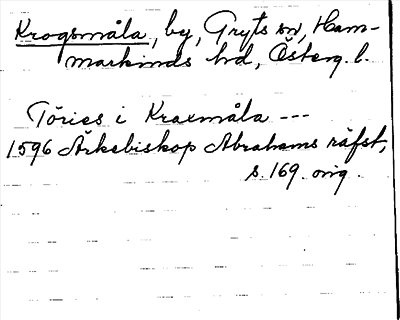 Krogsmåla, by, Gryts sn, Ham-
markinds hd, Österg. l.
Töries i Kraxmåla ---
1596 Ärkebiskop Abrahams räfst,
s. 169. orig.